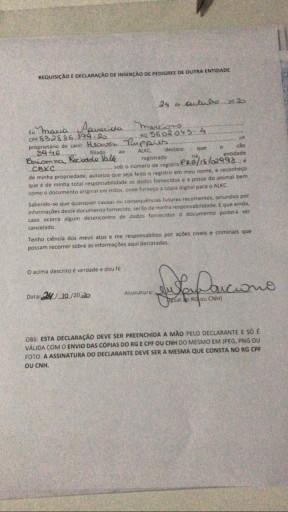 REQUISIÇÃO E DECLARAÇÃO DE INSERÇÃO DE PEDIGREE DE OUTRA ENTIDADE
24 de outubro de 2020
Eu Maria Aparecida
CPF RG 5602045-4
proprietário do canil Heaven Puppies nº
5946 filiado ao ALKC, declaro que o cão
registrado na entidade
CBKC sob o número de registro , é
de minha propriedade, autorizo que seja feito o registro em meu nome, e reconheço
que é de minha total responsabilidade os dados fornecidos e a posse do animal bem
como o documento original em mãos, onde forneço a cópia digital para o ALKC.
Sabendo-se que quaisquer causas ou consequências futuras recorrentes, oriundos por
informações deste documento fornecido, serão de minha responsabilidade. E que ainda,
caso ocorra algum desencontro de dados fornecidos o documento poderá ser
cancelado.
Tenho ciência dos meus atos e me responsabilizo por ações cíveis e criminais que
possam recorrer sobre as informações aqui declaradas.
O acima descrito é verdade e dou fé
Data: 24/10/2020 Assinatura:
(igual do RG ou CNH)
OBS: ESTA DECLARAÇÃO DEVE SER PREENCHIDA A MÃO PELO DECLARANTE E SÓ É
VÁLIDA COM O ENVIO DAS CÓPIAS DO RG E CPF OU CNH DO MESMO EM JPEG, PNG OU
FOTO. A ASSINATURA DO DECLARANTE DEVE SER A MESMA QUE CONSTA NO RG CPF
OU CNH.